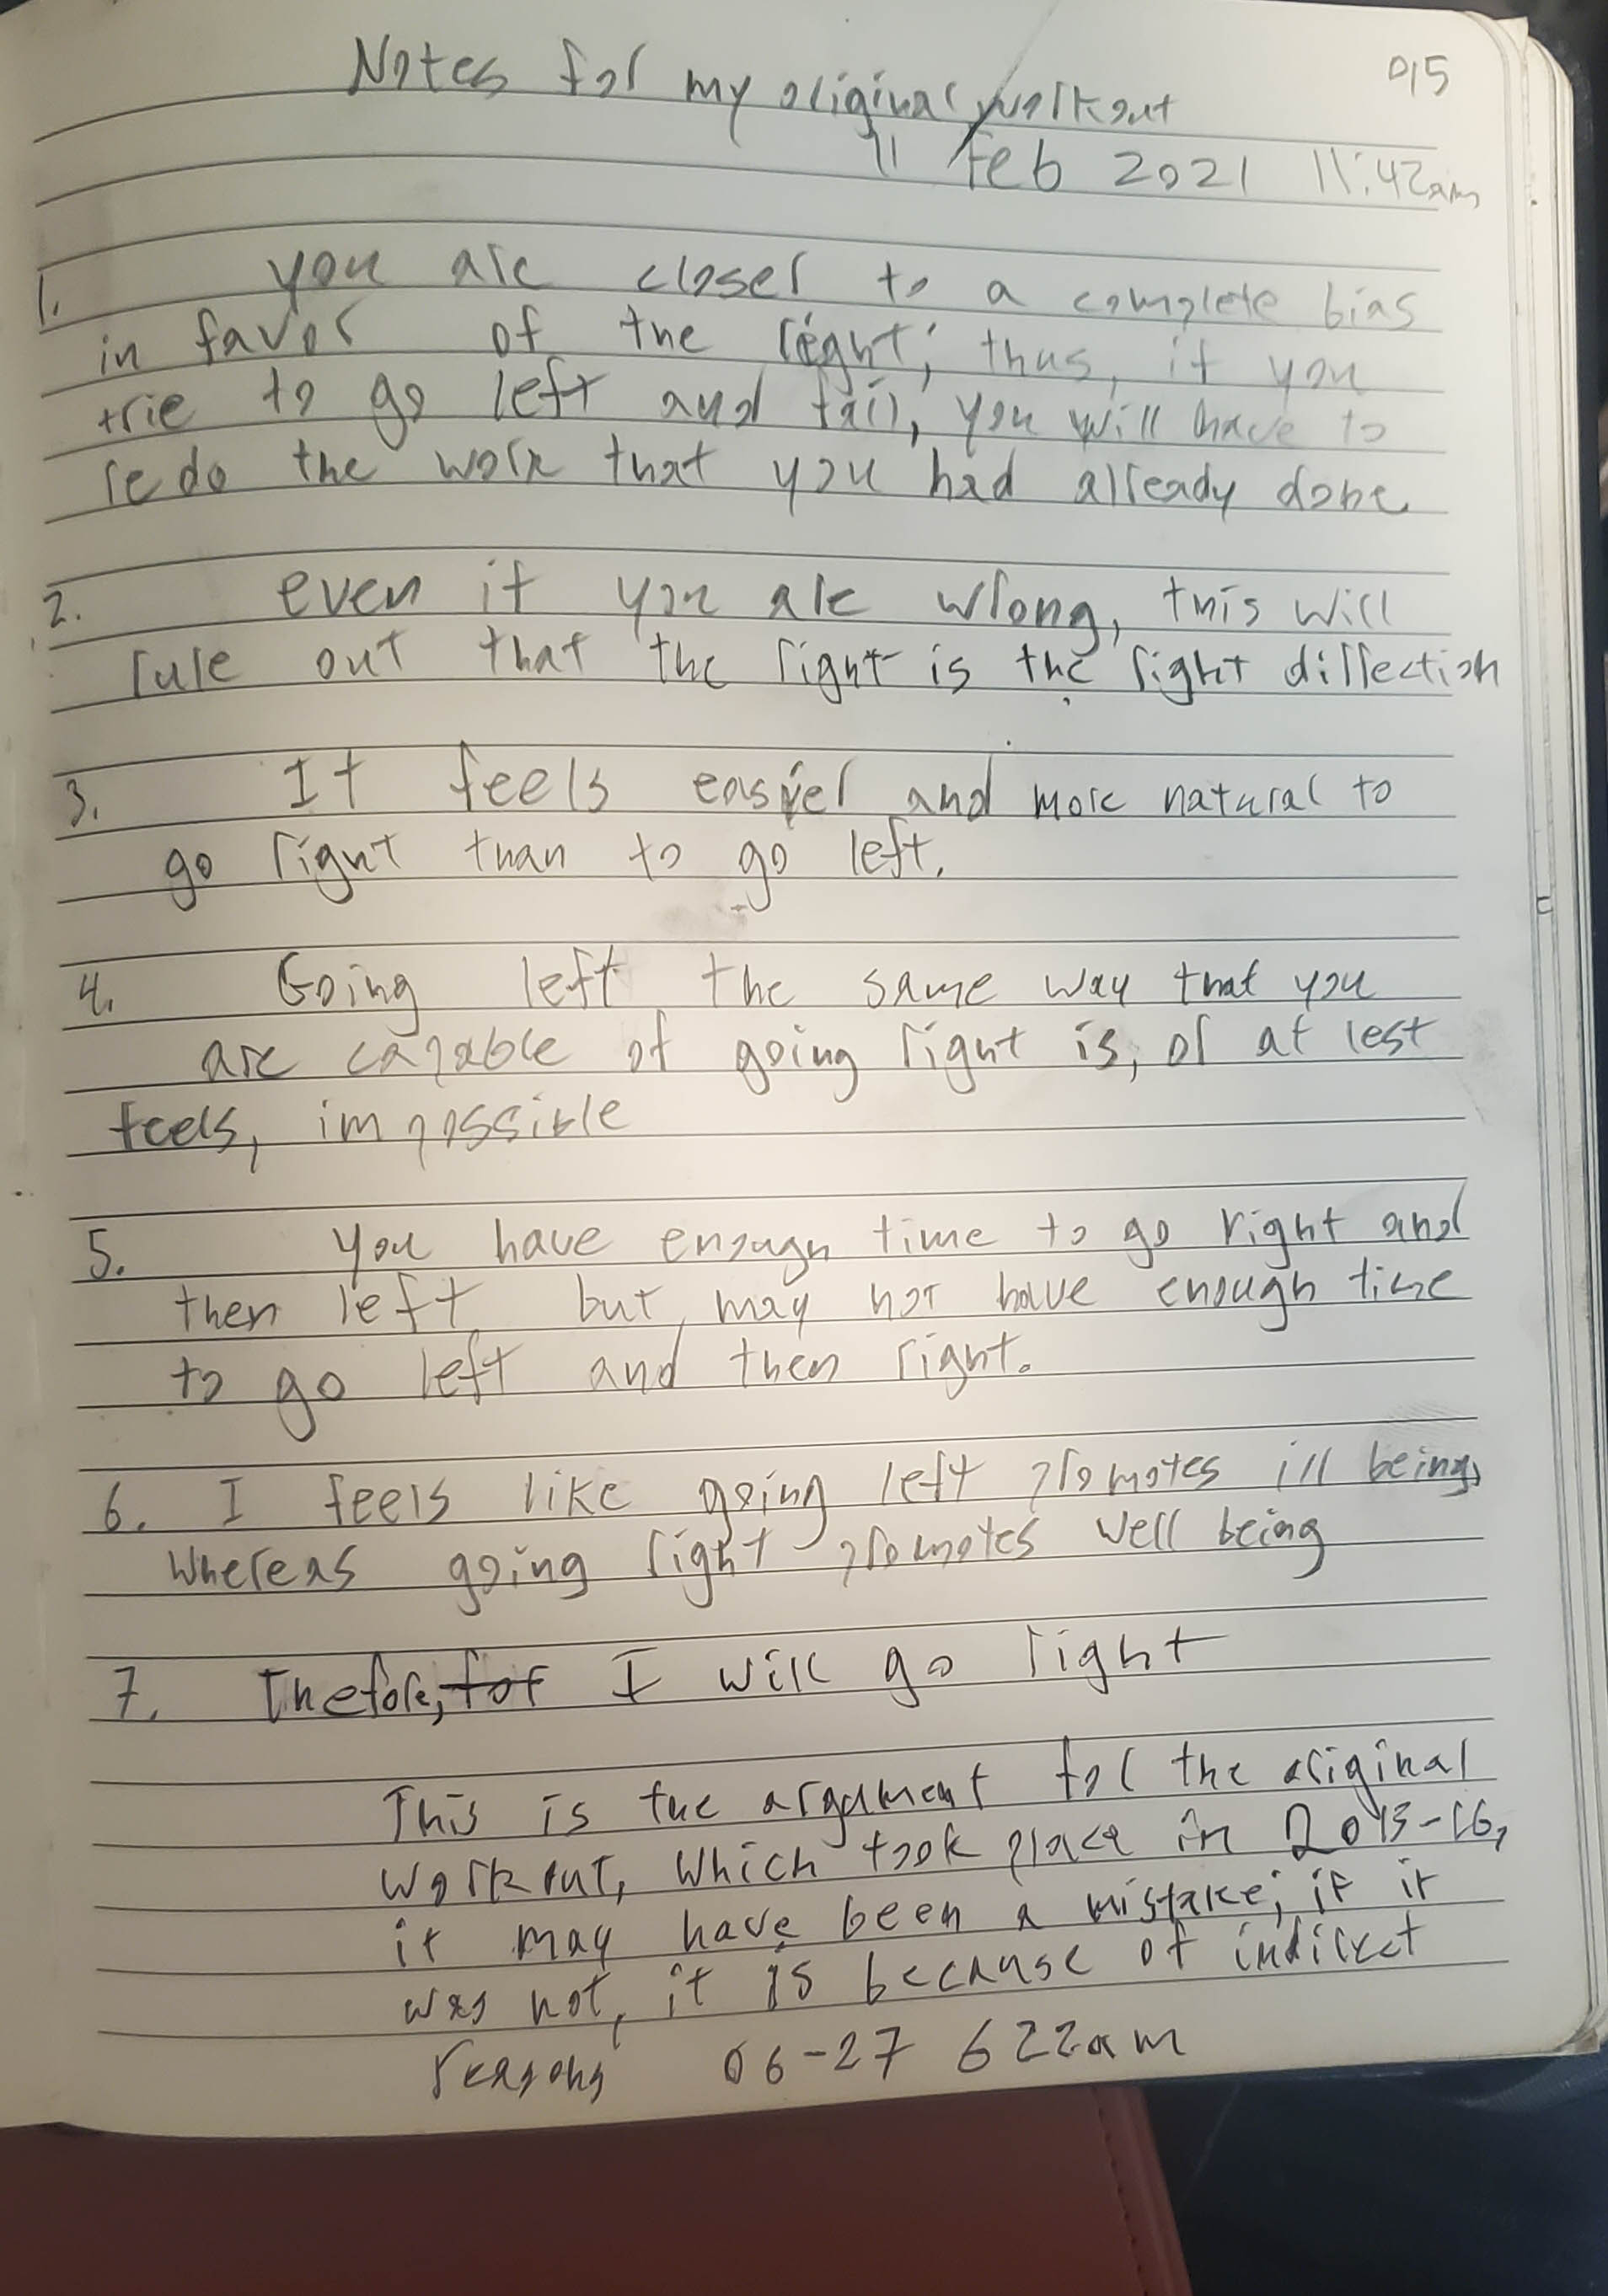 015
Notes for my original workout
11 Feb 2021 11:42am
1. you are closer to a complete bias
in favor of the right; thus, if you
trie to go left and fail, you will have to
redo the work that you had already done
2. even if you are wrong, this will
rule out that the right is the right dirrection
3. It feels easier and more natural to
go right than to go left.
4. Going left the same way that you
are capable of going right is, or at lest
feels, impossible
5. you have enough time to go right and
then left but may not have enough time
to go left and then right.
6. I feels like going left promotes ill being,
whereas going right promotes well being
7. Thefore, for I will go right
This is the argument for the original
workout, which took place in 2015-16,
it may have been a mistake; if it
was not, it is because of indirect
reasons 06-27 622am